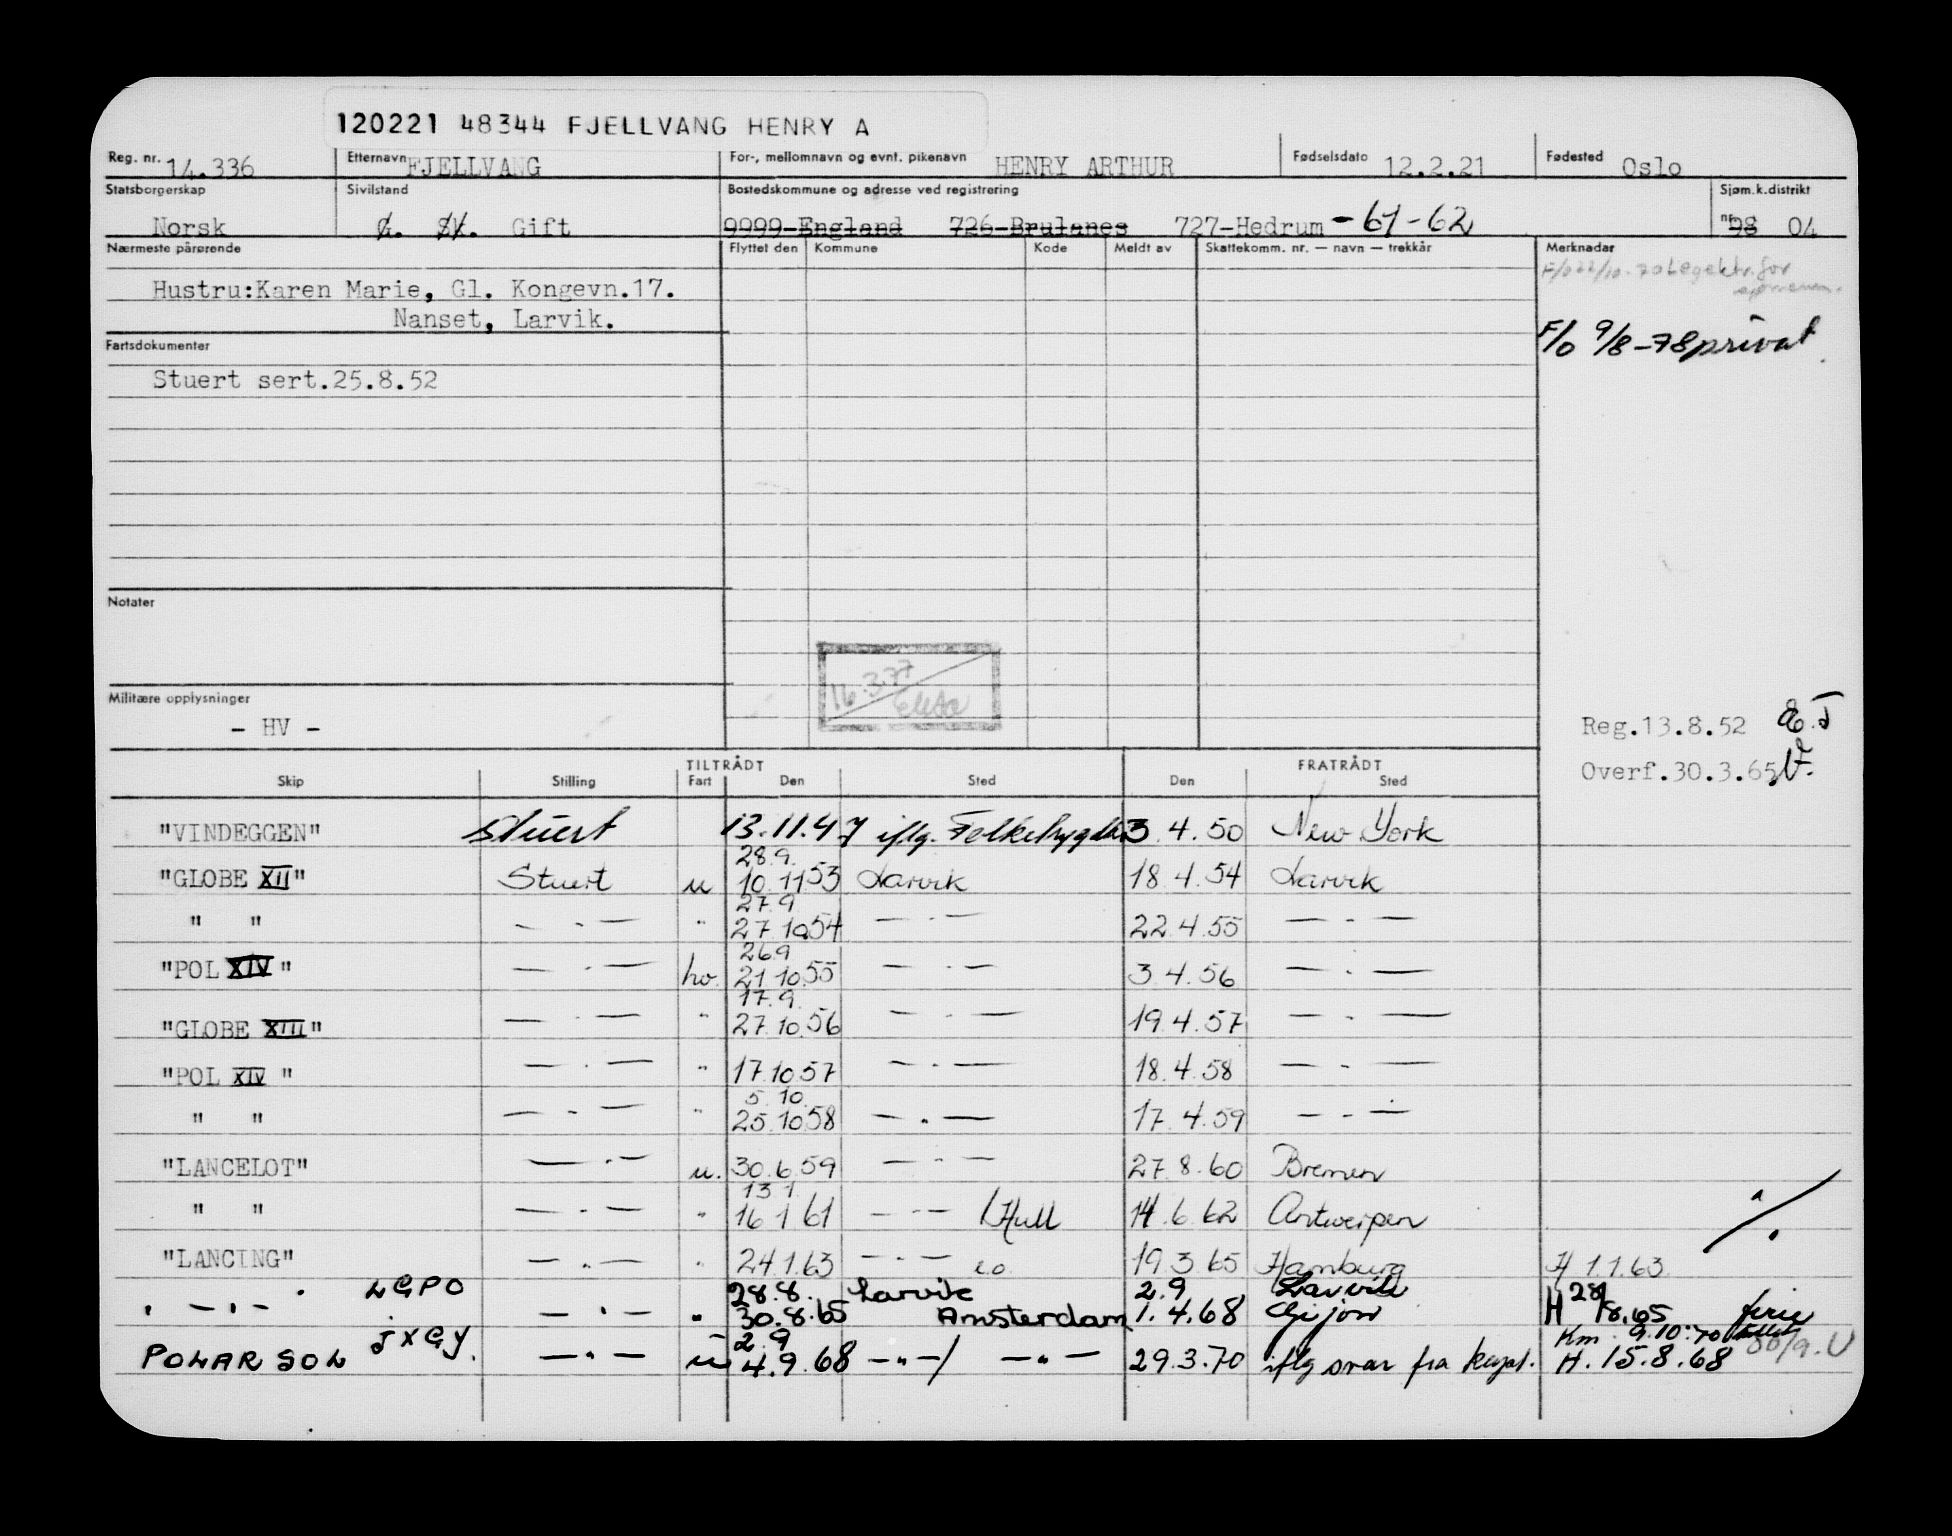 120221 48344 FJELLVANG HENRY A
Reg. nr. 14.336 Etternavn FJELLVANG For-, mellomnavn og evnt. pikenavn HENRY ARTHUR Fødselsdato 12.2.21 Fødested Oslo
Statsborgerskap Sivilstand Bostedskommune og adresse ved registrering Sjøm.k.distrikt
Norsk G. Sk. Gift 9999-England 726-Brulanes 727-Hedrum -61-62 nr. 98 04
Nærmeste pårørende Flyttet den Kommune Kode Meldt av Skattekomm. nr. — navn — trekkår Merknader
F/o 22/10-70 Legektr. for
Hustru:Karen Marie, Gl. Kongevn.17.
Nanset, Larvik.
F/o 9/8-78 privat
Fartsdokumenter
Stuert sert.25.8.52
Notater
16.3.77
Militære opplysninger
- HV -
Reg.13.8.52
Overf.30.3.65
TILTRÅDT FRATRÅDT
Skip Stilling Fart Den Sted Den Sted
"VINDEGGEN" Stuert 13.11.47 iflg. 3.4.50 New York
28.9.
"GLOBE XII" Stuert u 10.11 53 Larvik 18.4.54 Larvik
27.9
" " — . — " 27.10.54 — . — 22.4.55 — . —
26.9
"POL XIV" — . — hv. 21.10.55 — . — 3.4.56 — . —
17.9.
"GLOBE XIII" — . — 27.10.56 — . — 19.4.57 — . —
"POL XIV " — . — " 17.10.57 — . — 18.4.58 — . —
5.10.
" " — . — " 25.10.58 — . — 17.4.59 — . —
"LANCELOT" — . — u. 30.6.59 — . — 27.8.60 Bremen
13.1.
" " — . — " 16.1.61 — . — /Hull 14.6.62 Antwerpen
"LANCING" — . — " 24.1.63 — . — 19.3.65 Hamburg H 1.1.63
LGPO 28.8. Larvik 2.9 Larvik
" — . — " — . — " 30.8.65 Amsterdam 1.4.68 Gijon H 28/8.65 ferie
JXGY 2.9 Km. 9.10.70
POLAR SOL — " — u 4.9.68 — " — / — " — 29.3.70 iflg svar fra kapt. H. 15.8.68